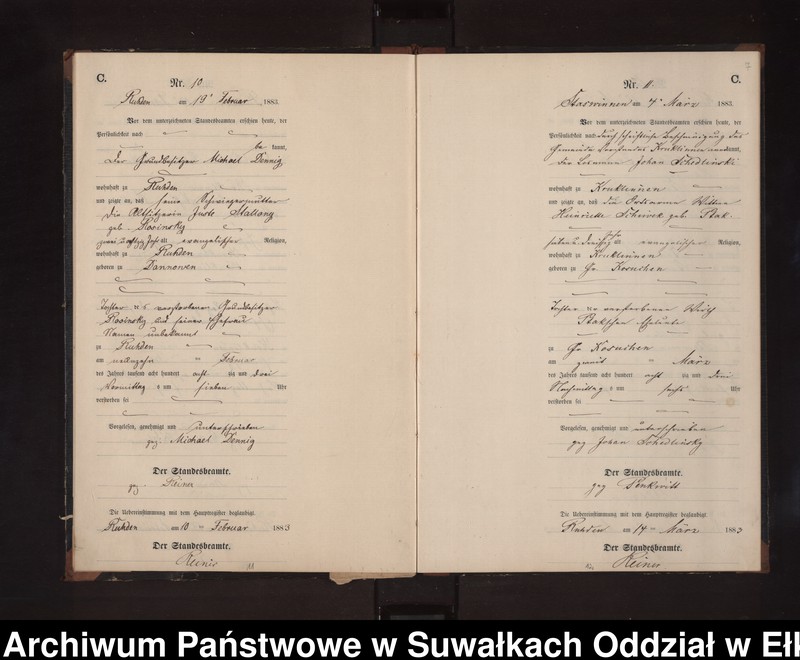 C.
Nr. 10
Ruhden am 19ⁿ Februar 1883.
Vor dem unterzeichneten Standesbeamten erschien heute, der
Persönlichkeit nach
be kannt,
der Grundbesitzer Michael Dennig
wohnhaft zu Ruhden
und zeigte an, daß seine Schwiegermutter
die Altsitzerin Juste Stallong
geb Rosinsky
alt evangelischer Religion,
wohnhaft zu Ruhden
geboren zu Dannowen
Tochter des verstorbenen Grundbesitzer
Rosinsky und seiner Ehefrau
Namen unbekannt
zu Ruhden
am neunzehn Februar
des Jahres tausend acht hundert acht zig und drei
Vormittag s um sieben Uhr
verstorben sei
Vorgelesen, genehmigt und unterschrieben
gez. Michael Dennig
Der Standesbeamte.
gez. Reiner
Die Uebereinstimmung mit dem Hauptregister beglaubigt.
Ruhden am Februar 1883
Der Standesbeamte.
Reiner
7
Nr. 11. C.
Staswinnen am 4ⁿ März 1883
Vor dem unterzeichneten Standesbeamten erschien heute, der
Persönlichkeit nach durch schriftliche Bescheinigung des
Gemeinde Vorstandes Kruklinnen kannt,
der Johan
wohnhaft zu Kruklinnen
und zeigte an, daß die Wittwe
Heinriette geb Ptak.
sieben u. dreißig Jahr alt evangelischer Religion,
wohnhaft zu Kruklinnen
geboren zu Gr. Kosuchen
Tochter der verstorbenen Wirth
Ptakschen Eheleute
zu Gr Kosuchen
am zweiten März
des Jahres tausend acht hundert acht zig und drei
Nachmittag s um sechs Uhr
verstorben sei
Vorgelesen, genehmigt und unterschrieben
gez Johan
Der Standesbeamte.
gez
Die Uebereinstimmung mit dem Hauptregister beglaubigt.
Ruhden am 14 März 1883
Der Standesbeamte.
Reiner
Archiwum Państwowe w Suwałkach Oddział w Ełk